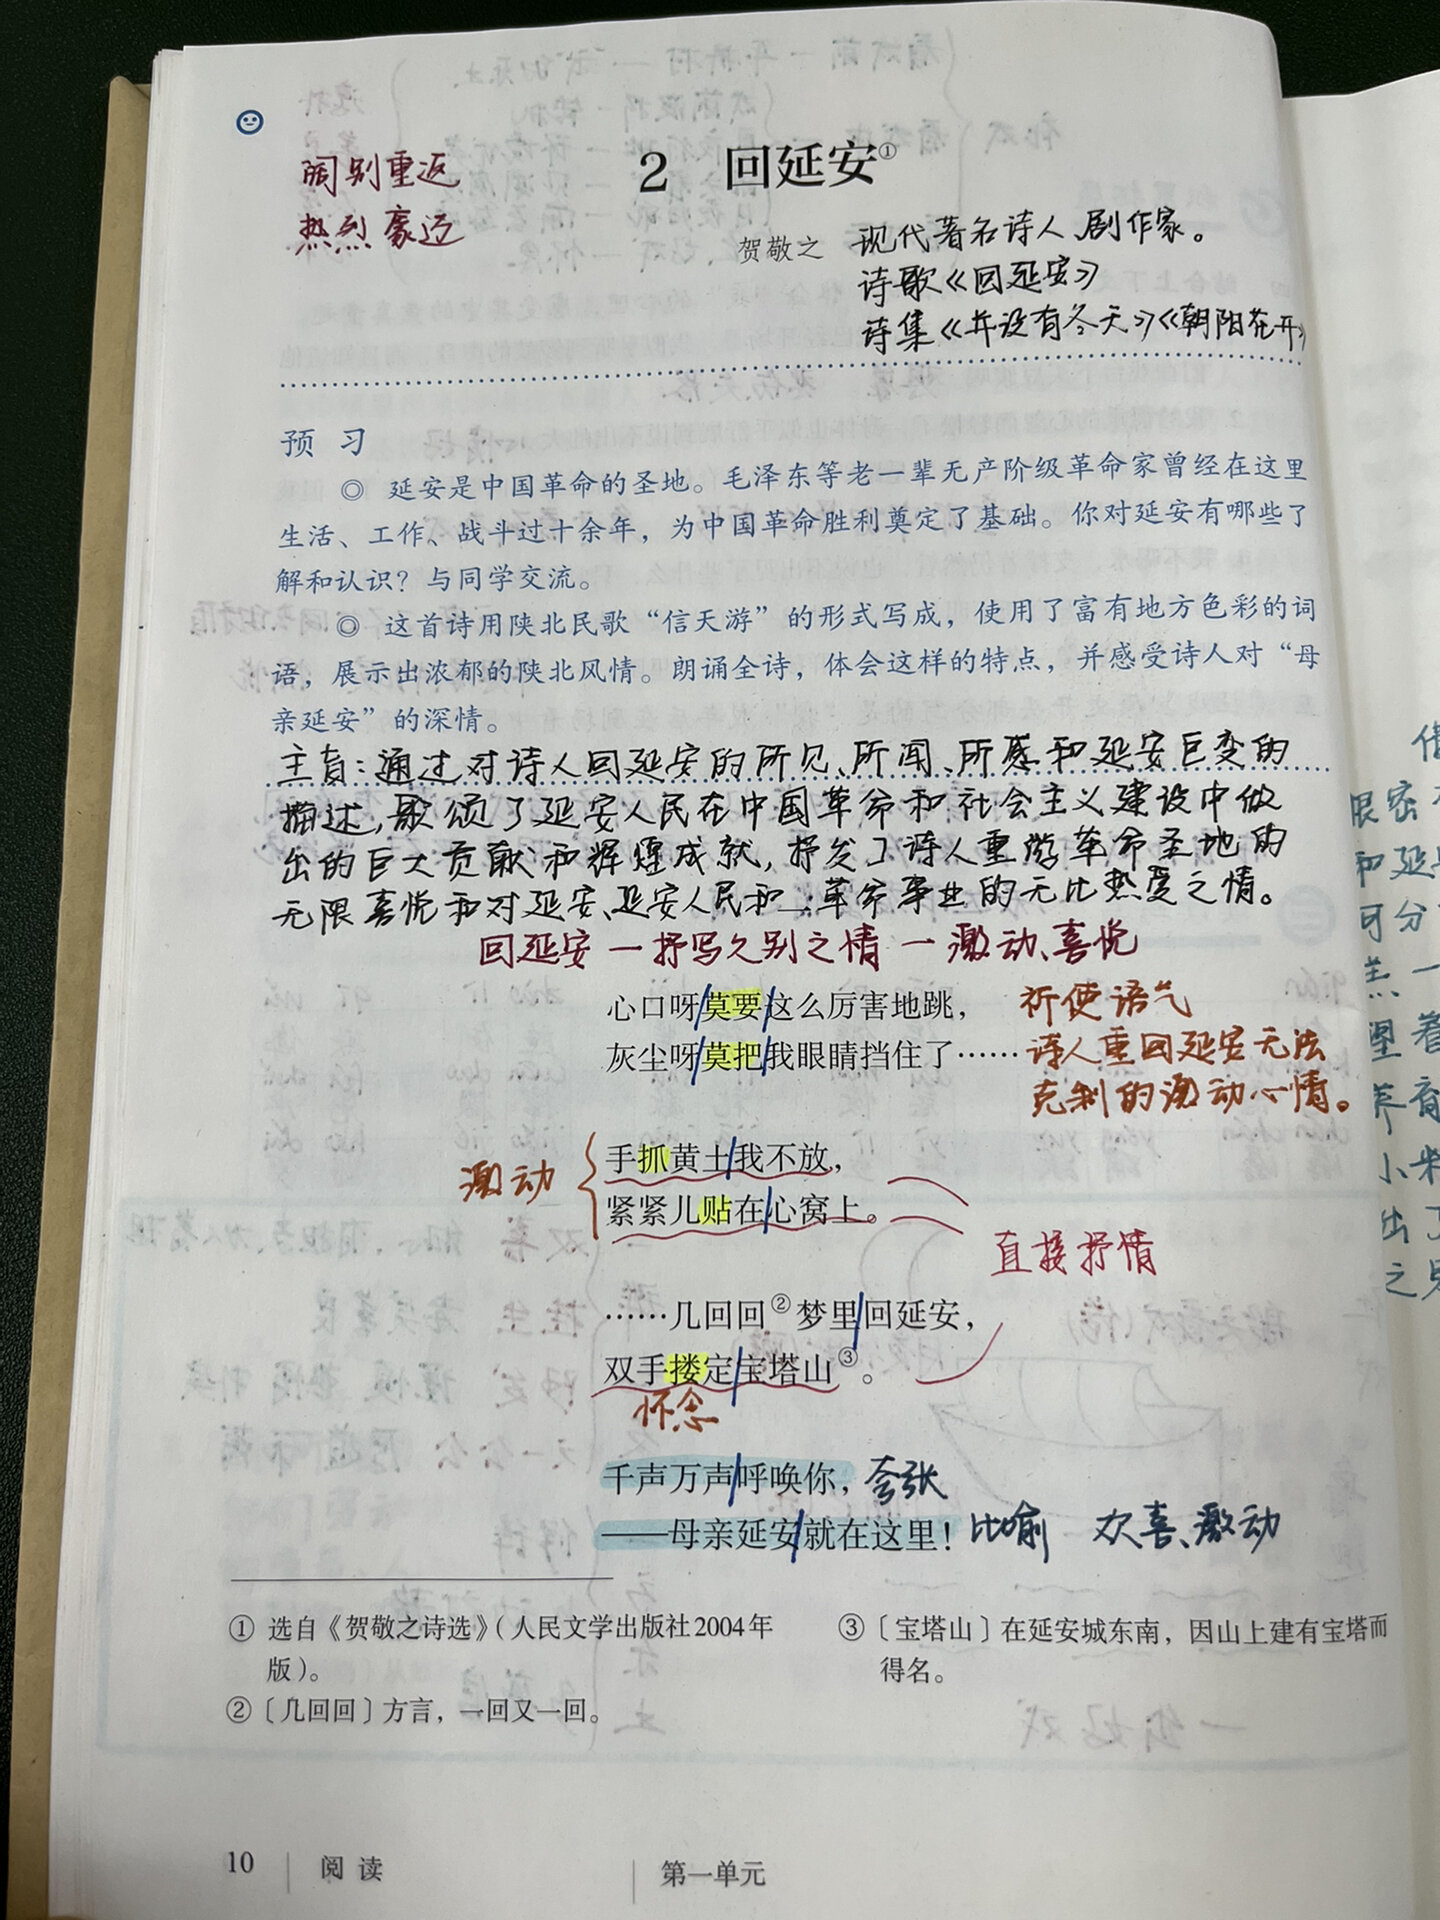 阔别重返
热烈豪迈
2 回延安①
贺敬之 现代著名诗人、剧作家。
诗歌《回延安》
诗集《并没有冬天》《朝阳花开》
预 习
◎ 延安是中国革命的圣地。毛泽东等老一辈无产阶级革命家曾经在这里
生活、工作、战斗过十余年，为中国革命胜利奠定了基础。你对延安有哪些了
解和认识？与同学交流。
◎ 这首诗用陕北民歌“信天游”的形式写成，使用了富有地方色彩的词
语，展示出浓郁的陕北风情。朗诵全诗，体会这样的特点，并感受诗人对“母
亲延安”的深情。
主旨：通过对诗人回延安的所见、所闻、所感和延安巨变的
描述，歌颂了延安人民在中国革命和社会主义建设中做
出的巨大贡献和辉煌成就，抒发了诗人重游革命圣地的
无限喜悦和对延安、延安人民和革命事业的无比热爱之情。
回延安一抒写久别之情一激动、喜悦
心口呀莫要这么厉害地跳， 祈使语气
灰尘呀莫把我眼睛挡住了…… 诗人重回延安无法
克制的激动心情。
激动 手抓黄土我不放，
紧紧儿贴在心窝上。
直接抒情
……几回回②梦里回延安，
双手搂定宝塔山③。
怀念
千声万声呼唤你， 夸张
——母亲延安就在这里！ 比喻 欢喜、激动
① 选自《贺敬之诗选》（人民文学出版社2004年
版）。
②〔几回回〕方言，一回又一回。
③〔宝塔山〕在延安城东南，因山上建有宝塔而
得名。
10 阅读 第一单元
和延
可分
养育
小米
出了
之